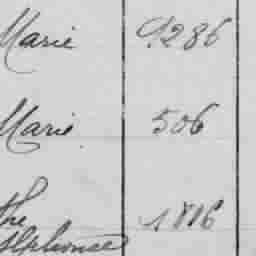 Marie 9286
Marie 506
the 1816
Alphonse